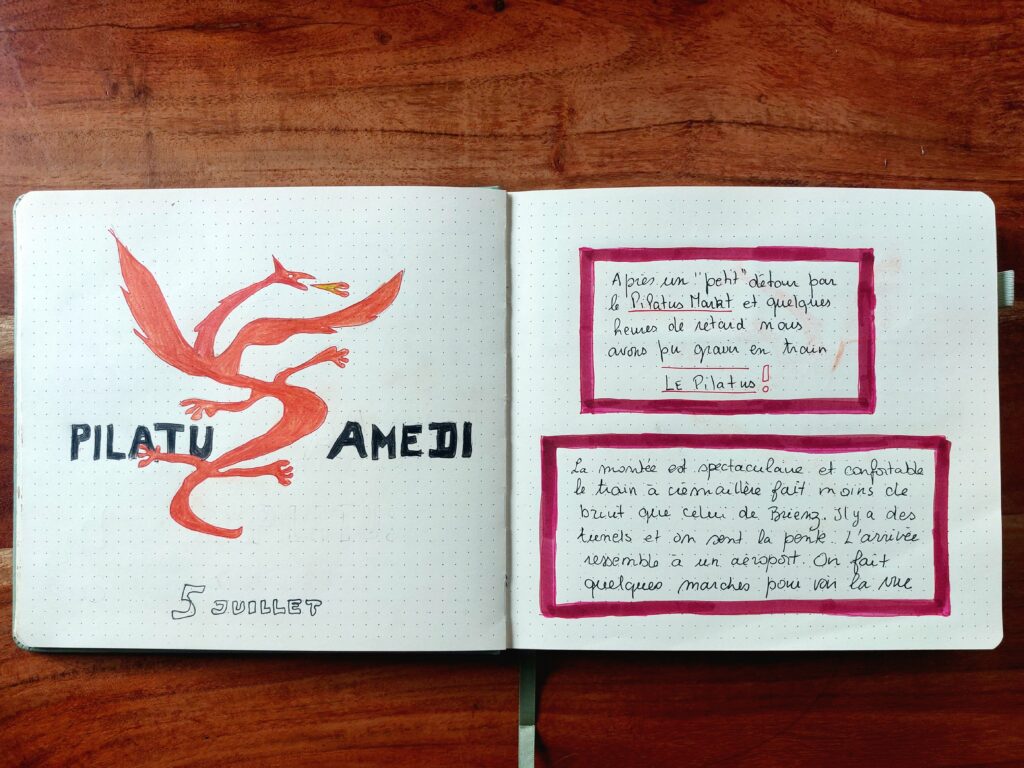 PILATU AMEDI
5 JUILLET
Après un "petit" détour par
le Pilatus Markt et quelques
heures de retard nous
avons pu gravir en train
Le Pilatus !
La montée est spectaculaire et confortable
le train à crémaillère fait moins de
bruit que celui de Brienz. Il y a des
tunels et on sent la pente. L'arrivée
ressemble à un aéroport. On fait
quelques marches pour voir la vue